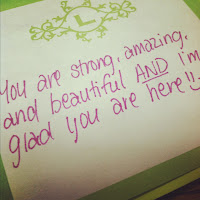 L
You are strong, amazing,
and beautiful AND I'm
glad you are here!!